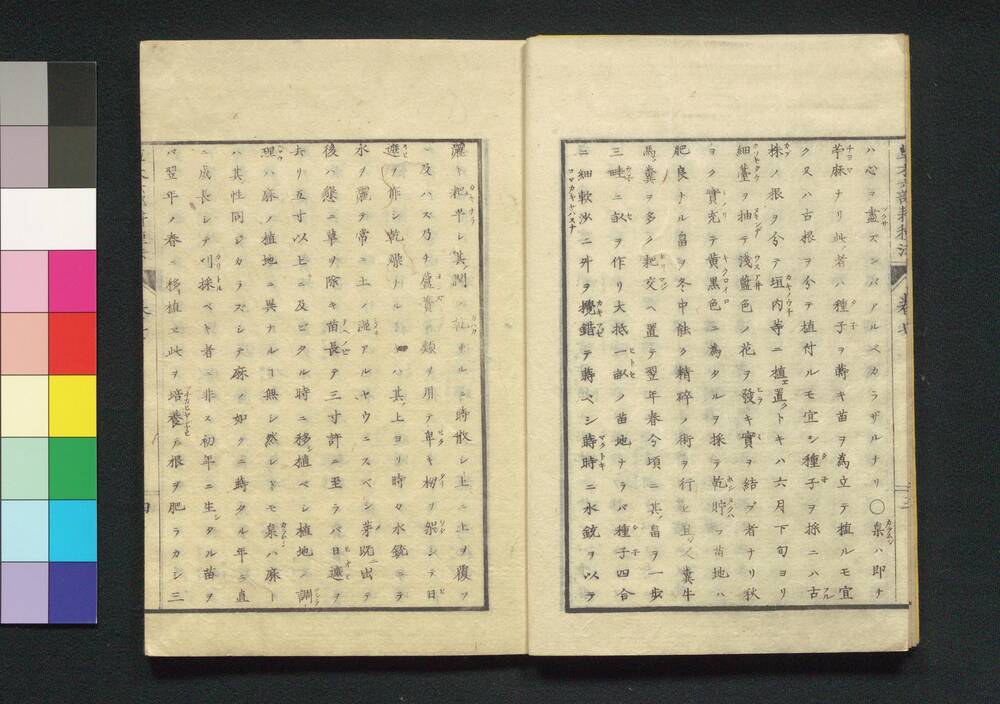 ハ心ヲ盡スンバアルベカラザルナリ○枲ハ即ナ
苧麻ナリ此ノ者ハ種子ヲ蒔キ苗ヲ為立テ植ルモ宜
ク又ハ古根ヲ分テ植付ルモ宜シ種子ヲ採ニハ古
株ノ根ヲ分テ垣内等ニ植置トキハ六月下旬ヨリ
細薹ヲ抽テ淺藍色ノ花ヲ發キ實ヲ結ブ者ナリ秋
ヨク實充テ黄黒色ニ為タルヲ採テ乾貯フ苗地ハ
肥良ナル畠ヲ冬中能ク精碎ノ術ヲ行ヒ且ツ糞牛
馬糞ヲ多ク耙交ヘ置テ翌年春今頃ニ其畠ヲ一歩
三畦ニ畝ヲ作リ大抵一畝ノ苗地ナラバ種子四合
ニ細軟沙ニ升ヲ攪錯テ蒔ベシ蒔時ニ水銃ヲ以テ
灑ト把平レ其潤シ時散シ上ニ土ヲ覆フ
ニ及ハズ乃チ蘆簀ノ類ヲ用テ卑キ棚ヲ架シテ日
遮ヲ作シ乾燥ナルハ其上ヨリ時々水銃ニテ
水ヲ灑テ常ニ土ノ濕アルヤウニスベシ芽既ニ出テ
後ハ懇ニ草ヲ除キ苗長テ三寸許ニ至ラバ日遮ヲ
去リ五寸以上ニ及ビタル時ニ移シ植ベシ植地ノ調
理ハ麻ノ植地ニ異ナルコ無シ然レドモ枲ハ麻ト
ハ其性同ジカラズシテ麻ノ如クニ蒔タル年ニ直
ニ成長シテ刈採ベキ者ニ非ス初年ニ生タル苗ヲ
バ翌年ノ春ニ移植ヱ此ヲ培養テ根ヲ肥ラカシ三